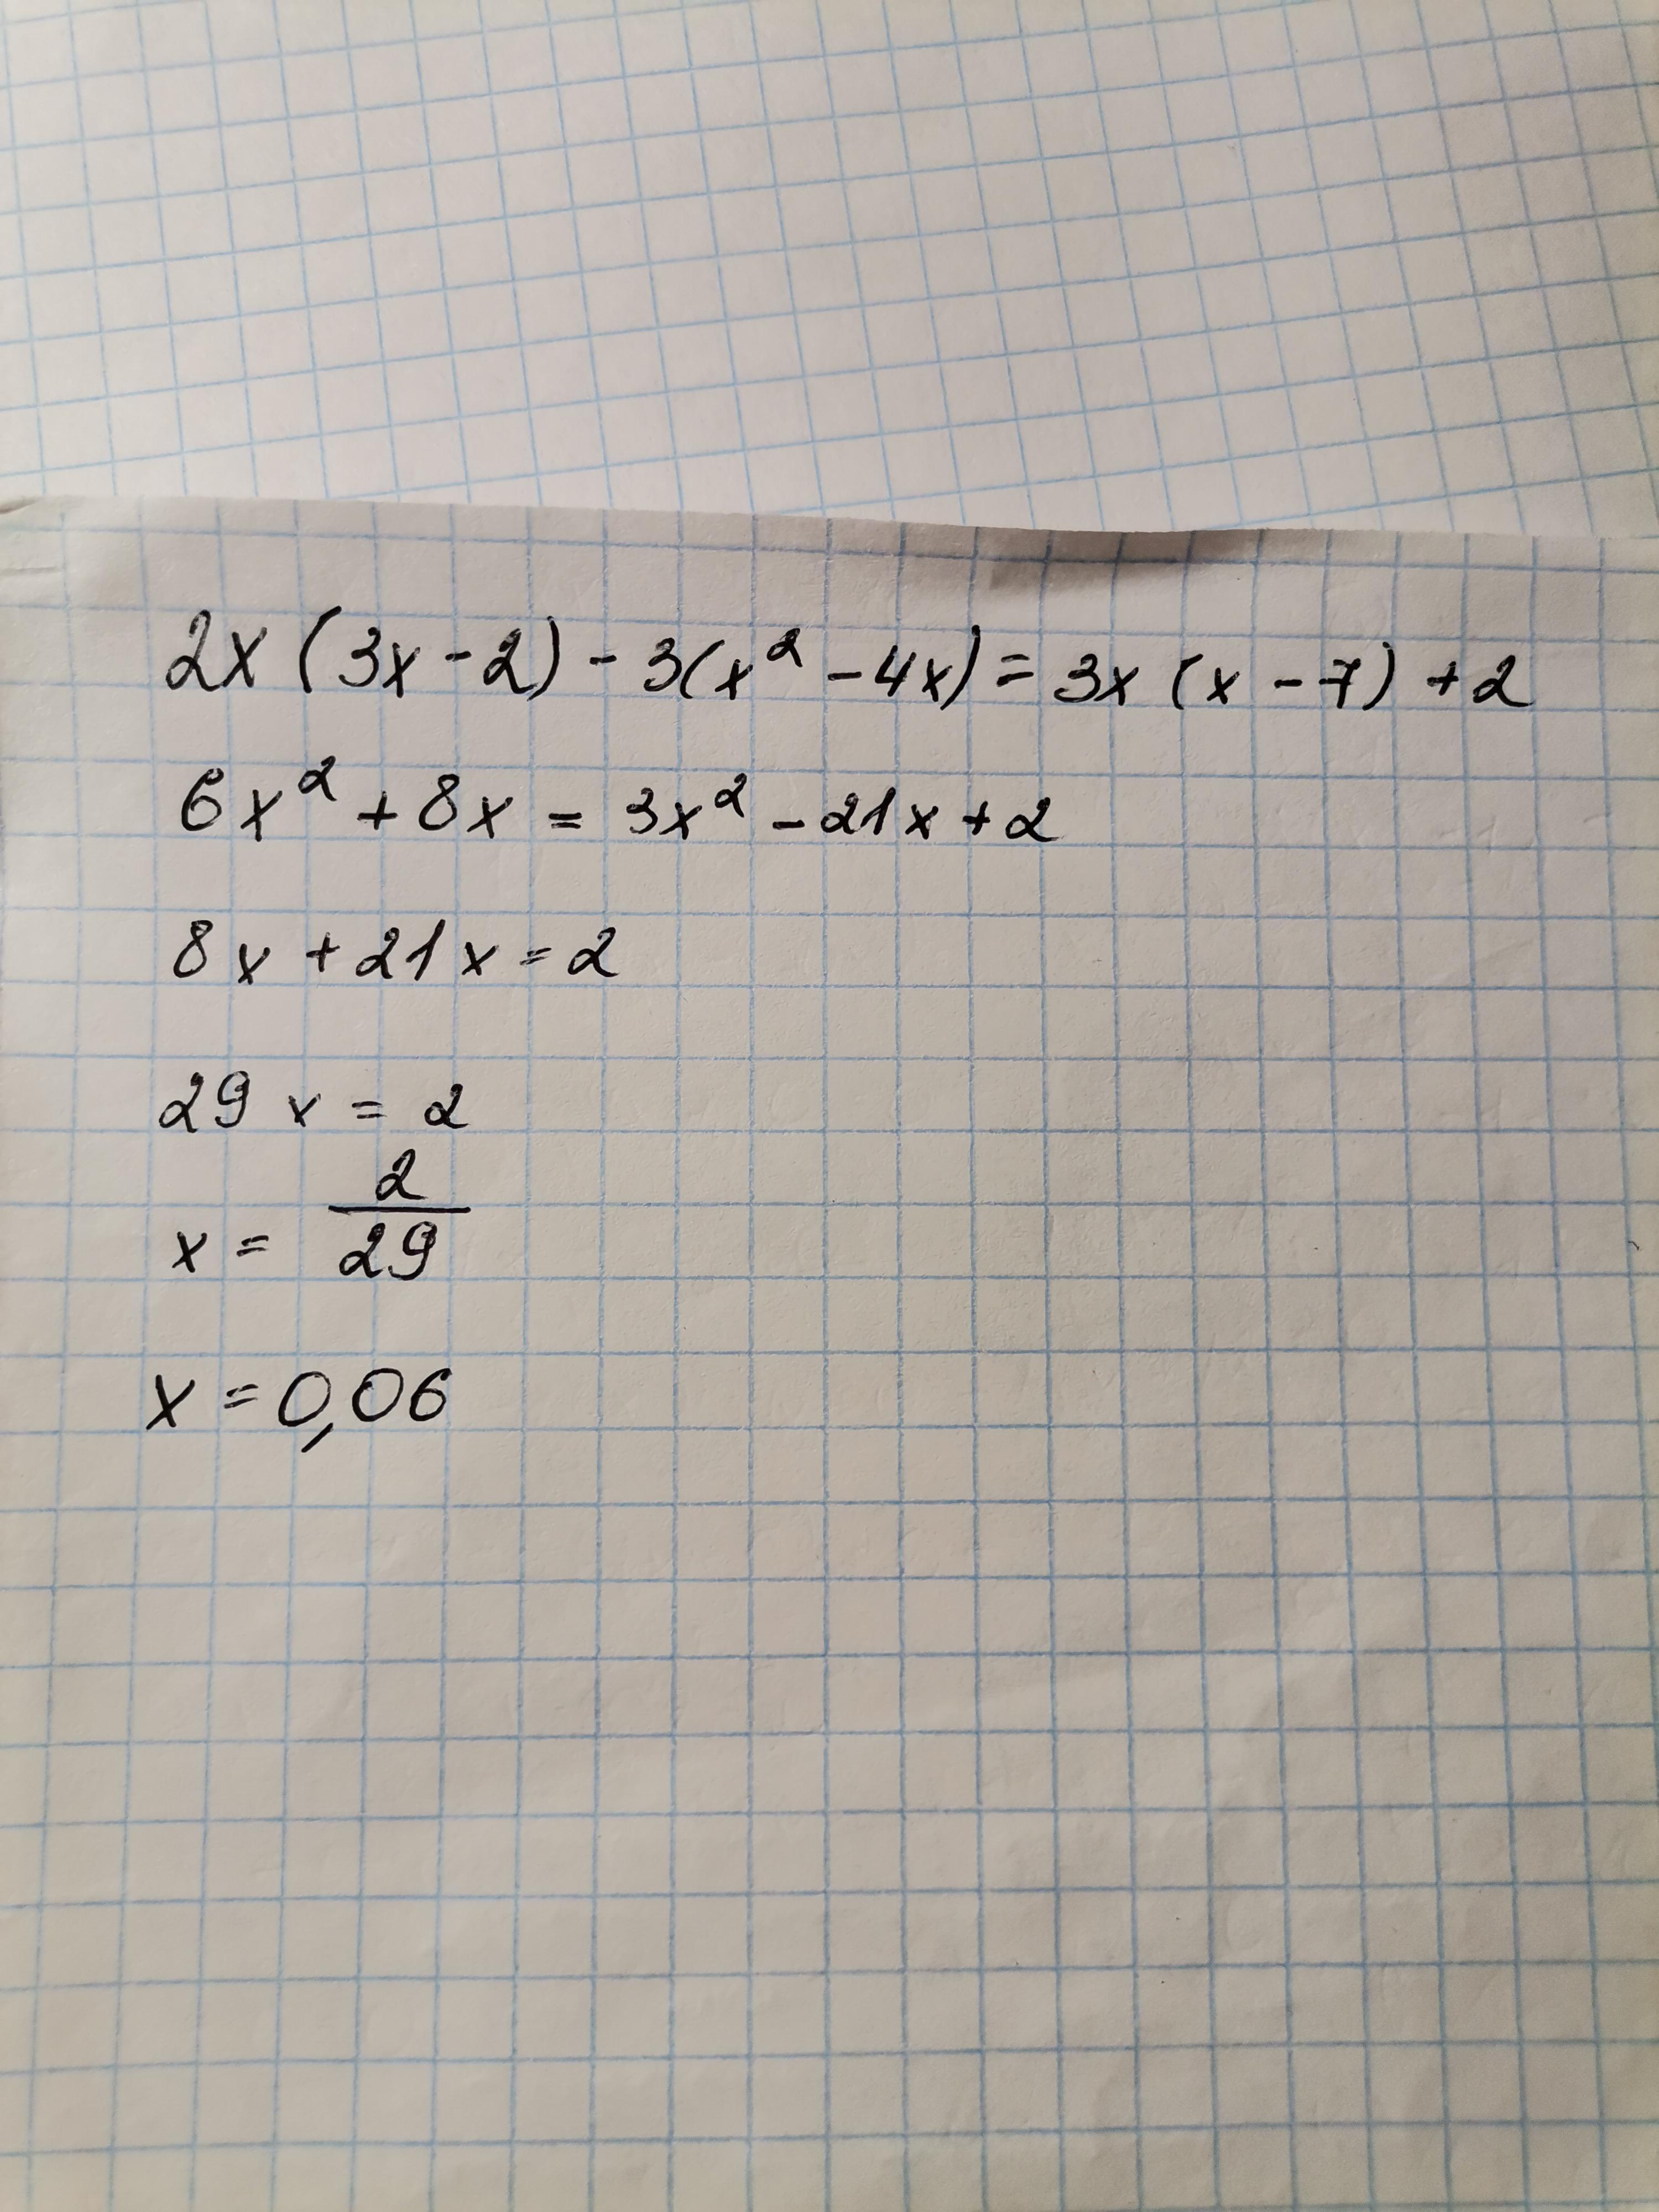 2x (3x - 2) - 3(x² - 4x) = 3x (x - 7) + 2
6x² + 8x = 3x² - 21x + 2
8x + 21x = 2
29x = 2
x = 2/29
x = 0,06